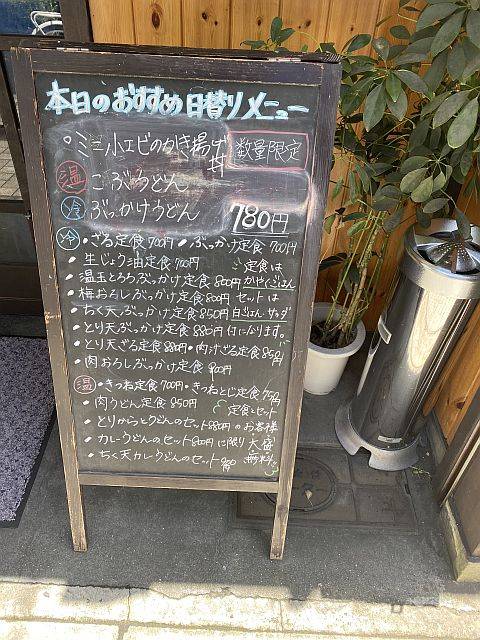 本日のおすすめ日替りメニュー
・ミニ小エビのかき揚げ丼 数量限定
温 こぶうどん
冷 ぶっかけうどん 780円
冷・ざる定食700円・ぶっかけ定食700円
・生じょう油定食700円 ご定食は
・温玉とろろぶっかけ定食800円 かやくごはん
・梅おろしぶっかけ定食800円 セットは
・ちく天ぶっかけ定食850円 白ごはん・サラダ
・とり天ぶっかけ定食880円 付になります。
・とり天ざる定食880円・肉汁ざる定食850円
・肉おろしぶっかけ定食900円
温・きつね定食700円・きつねとじ定食750円
・肉うどん定食850円 定食・セット
・とりからとうどんのセット880円 のお客様
・カレーうどんのセット800円 に限り 大盛
・ちく天カレーうどんのセット 無料